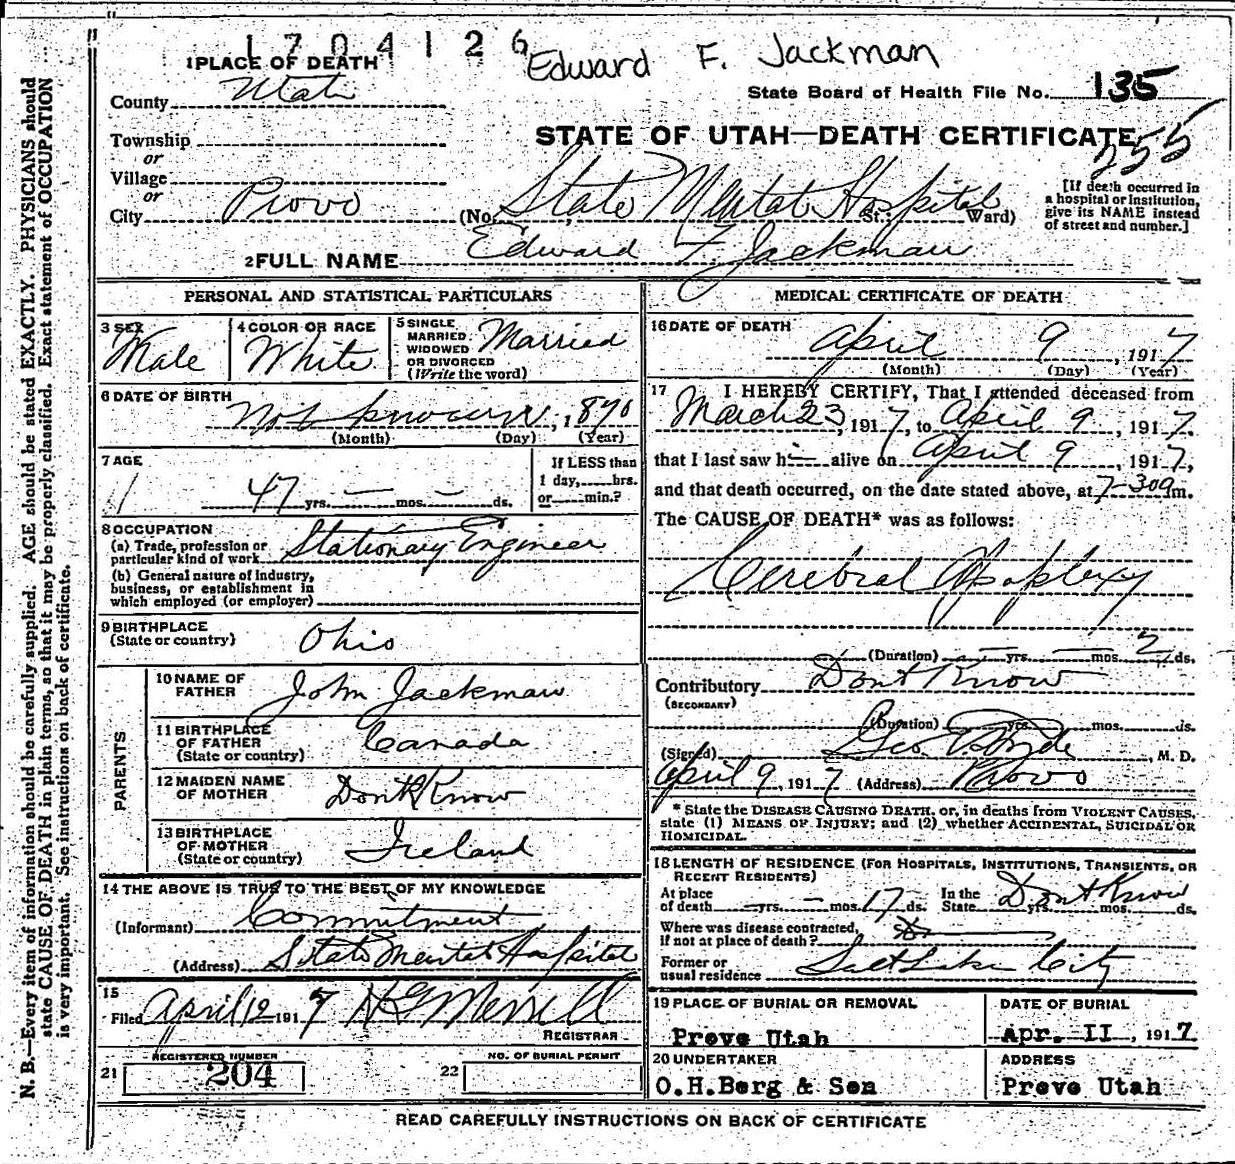 1704126
Edward F. Jackman
1 PLACE OF DEATH
County Utah
State Board of Health File No. 135
Township
or
STATE OF UTAH—DEATH CERTIFICATE
255
Village
or
City Provo (No. State Mental Hospital St.; Ward)
[If death occurred in
a hospital or institution,
give its NAME instead
of street and number.]
2 FULL NAME Edward F. Jackman
PERSONAL AND STATISTICAL PARTICULARS
3 SEX Male
4 COLOR OR RACE White
5 SINGLE
MARRIED
WIDOWED
OR DIVORCED
(Write the word) Married
6 DATE OF BIRTH
Not known, 1890
(Month) (Day) (Year)
7 AGE
47 yrs. — mos. — ds.
If LESS than
1 day, hrs.
or min.?
8 OCCUPATION
(a) Trade, profession or
particular kind of work Stationary Engineer
(b) General nature of industry,
business, or establishment in
which employed (or employer)
9 BIRTHPLACE
(State or country) Ohio
PARENTS
10 NAME OF
FATHER John Jackman
11 BIRTHPLACE
OF FATHER
(State or country) Canada
12 MAIDEN NAME
OF MOTHER Dont Know
13 BIRTHPLACE
OF MOTHER
(State or country) Ireland
14 THE ABOVE IS TRUE TO THE BEST OF MY KNOWLEDGE
(Informant) Commitment
(Address) State Mental Hospital
15
Filed April 12 1917 H G Merrill
REGISTRAR
REGISTERED NUMBER
21 204
NO. OF BURIAL PERMIT
22
MEDICAL CERTIFICATE OF DEATH
16 DATE OF DEATH
April 9, 1917
(Month) (Day) (Year)
17 I HEREBY CERTIFY, That I attended deceased from
March 23, 1917, to April 9, 1917,
that I last saw h— alive on April 9, 1917,
and that death occurred, on the date stated above, at 7-30 a m.
The CAUSE OF DEATH* was as follows:
Cerebral Apoplexy
(Duration) — yrs. — mos. 2 ds.
Contributory Dont Know
(SECONDARY)
(Duration) yrs. mos. ds.
(Signed) Geo. , M. D.
April 9, 1917 (Address) Provo
* State the DISEASE CAUSING DEATH, or, in deaths from VIOLENT CAUSES,
state (1) MEANS OF INJURY; and (2) whether ACCIDENTAL, SUICIDAL OR
HOMICIDAL.
18 LENGTH OF RESIDENCE (FOR HOSPITALS, INSTITUTIONS, TRANSIENTS, OR
RECENT RESIDENTS)
At place
of death — yrs. — mos. 17 ds. In the
State Dont Know yrs. mos. ds.
Where was disease contracted,
if not at place of death?
Former or
usual residence Salt Lake City
19 PLACE OF BURIAL OR REMOVAL
Provo Utah
DATE OF BURIAL
Apr. II, 1917
20 UNDERTAKER
O.H.Berg & Son
ADDRESS
Provo Utah
READ CAREFULLY INSTRUCTIONS ON BACK OF CERTIFICATE
N. B.—Every item of information should be carefully supplied. AGE should be stated EXACTLY. PHYSICIANS should
state CAUSE OF DEATH in plain terms, so that it may be properly classified. Exact statement of OCCUPATION
is very important. See instructions on back of certificate.